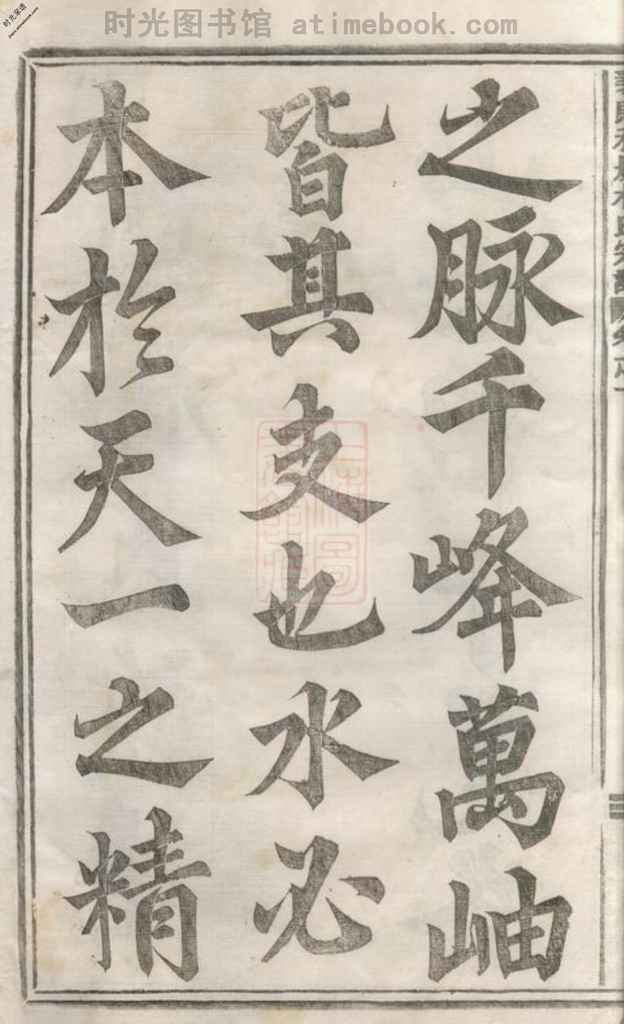 时光图书馆 atimebook.com
之脉千峰萬岫
皆其支也水必
本於天一之精